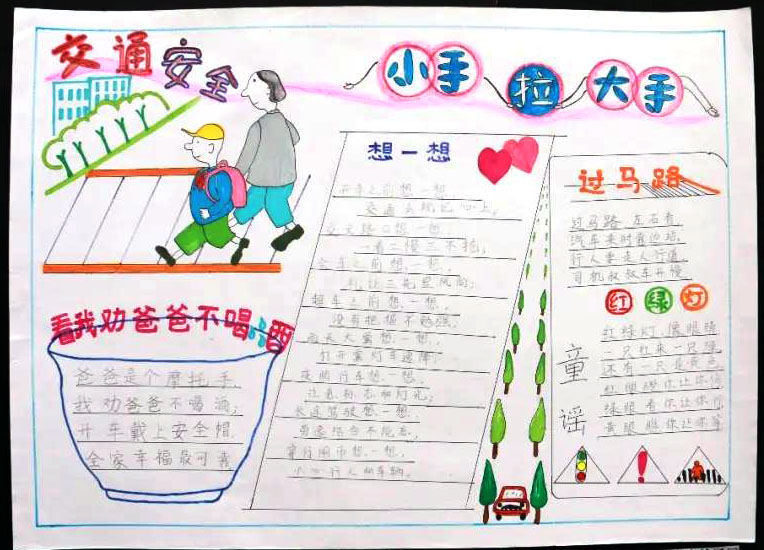 交通安全
小手拉大手
想一想
开车之前想一想,
交通法规记心上,
交叉路口想一想,
一看二慢三不抢;
会车之前想一想,
礼让三先显风尚;
超车之前想一想,
没有把握不勉强;
雨天大雾想一想,
打开雾灯车速降;
夜间行车想一想,
注意标志和灯光;
长途驾驶想一想,
劳逸结合不能忘,
重行闹市想一想,
小心行人和车辆。
过马路
过马路 左右看
汽车来时靠边站,
行人要走人行道,
司机叔叔车开慢
红绿灯
童谣
红绿灯,像眼睛
一只红来一只绿
还有一只是黄色
红眼 你让你停
绿眼看你让你行
黄眼 你让你等
看我劝爸爸不喝酒
爸爸是个摩托手,
我劝爸爸不喝酒,
开车戴上安全帽,
全家幸福最可靠